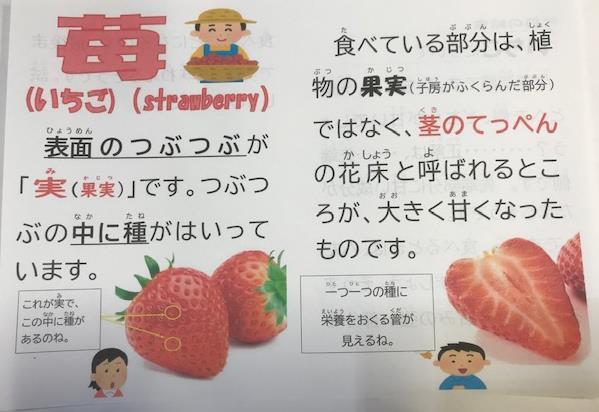 苺
(いちご) (strawberry)
表面のつぶつぶが
「実(果実)」です。つぶつ
ぶの中に種がはいって
います。
これが実で、
この中に種が
あるのね。
食べている部分は、植
物の果実(子房がふくらんだ部分)
ではなく、茎のてっぺん
の花床と呼ばれるとこ
ろが、大きく甘くなった
ものです。
一つ一つの種に
栄養をおくる管が
見えるね。